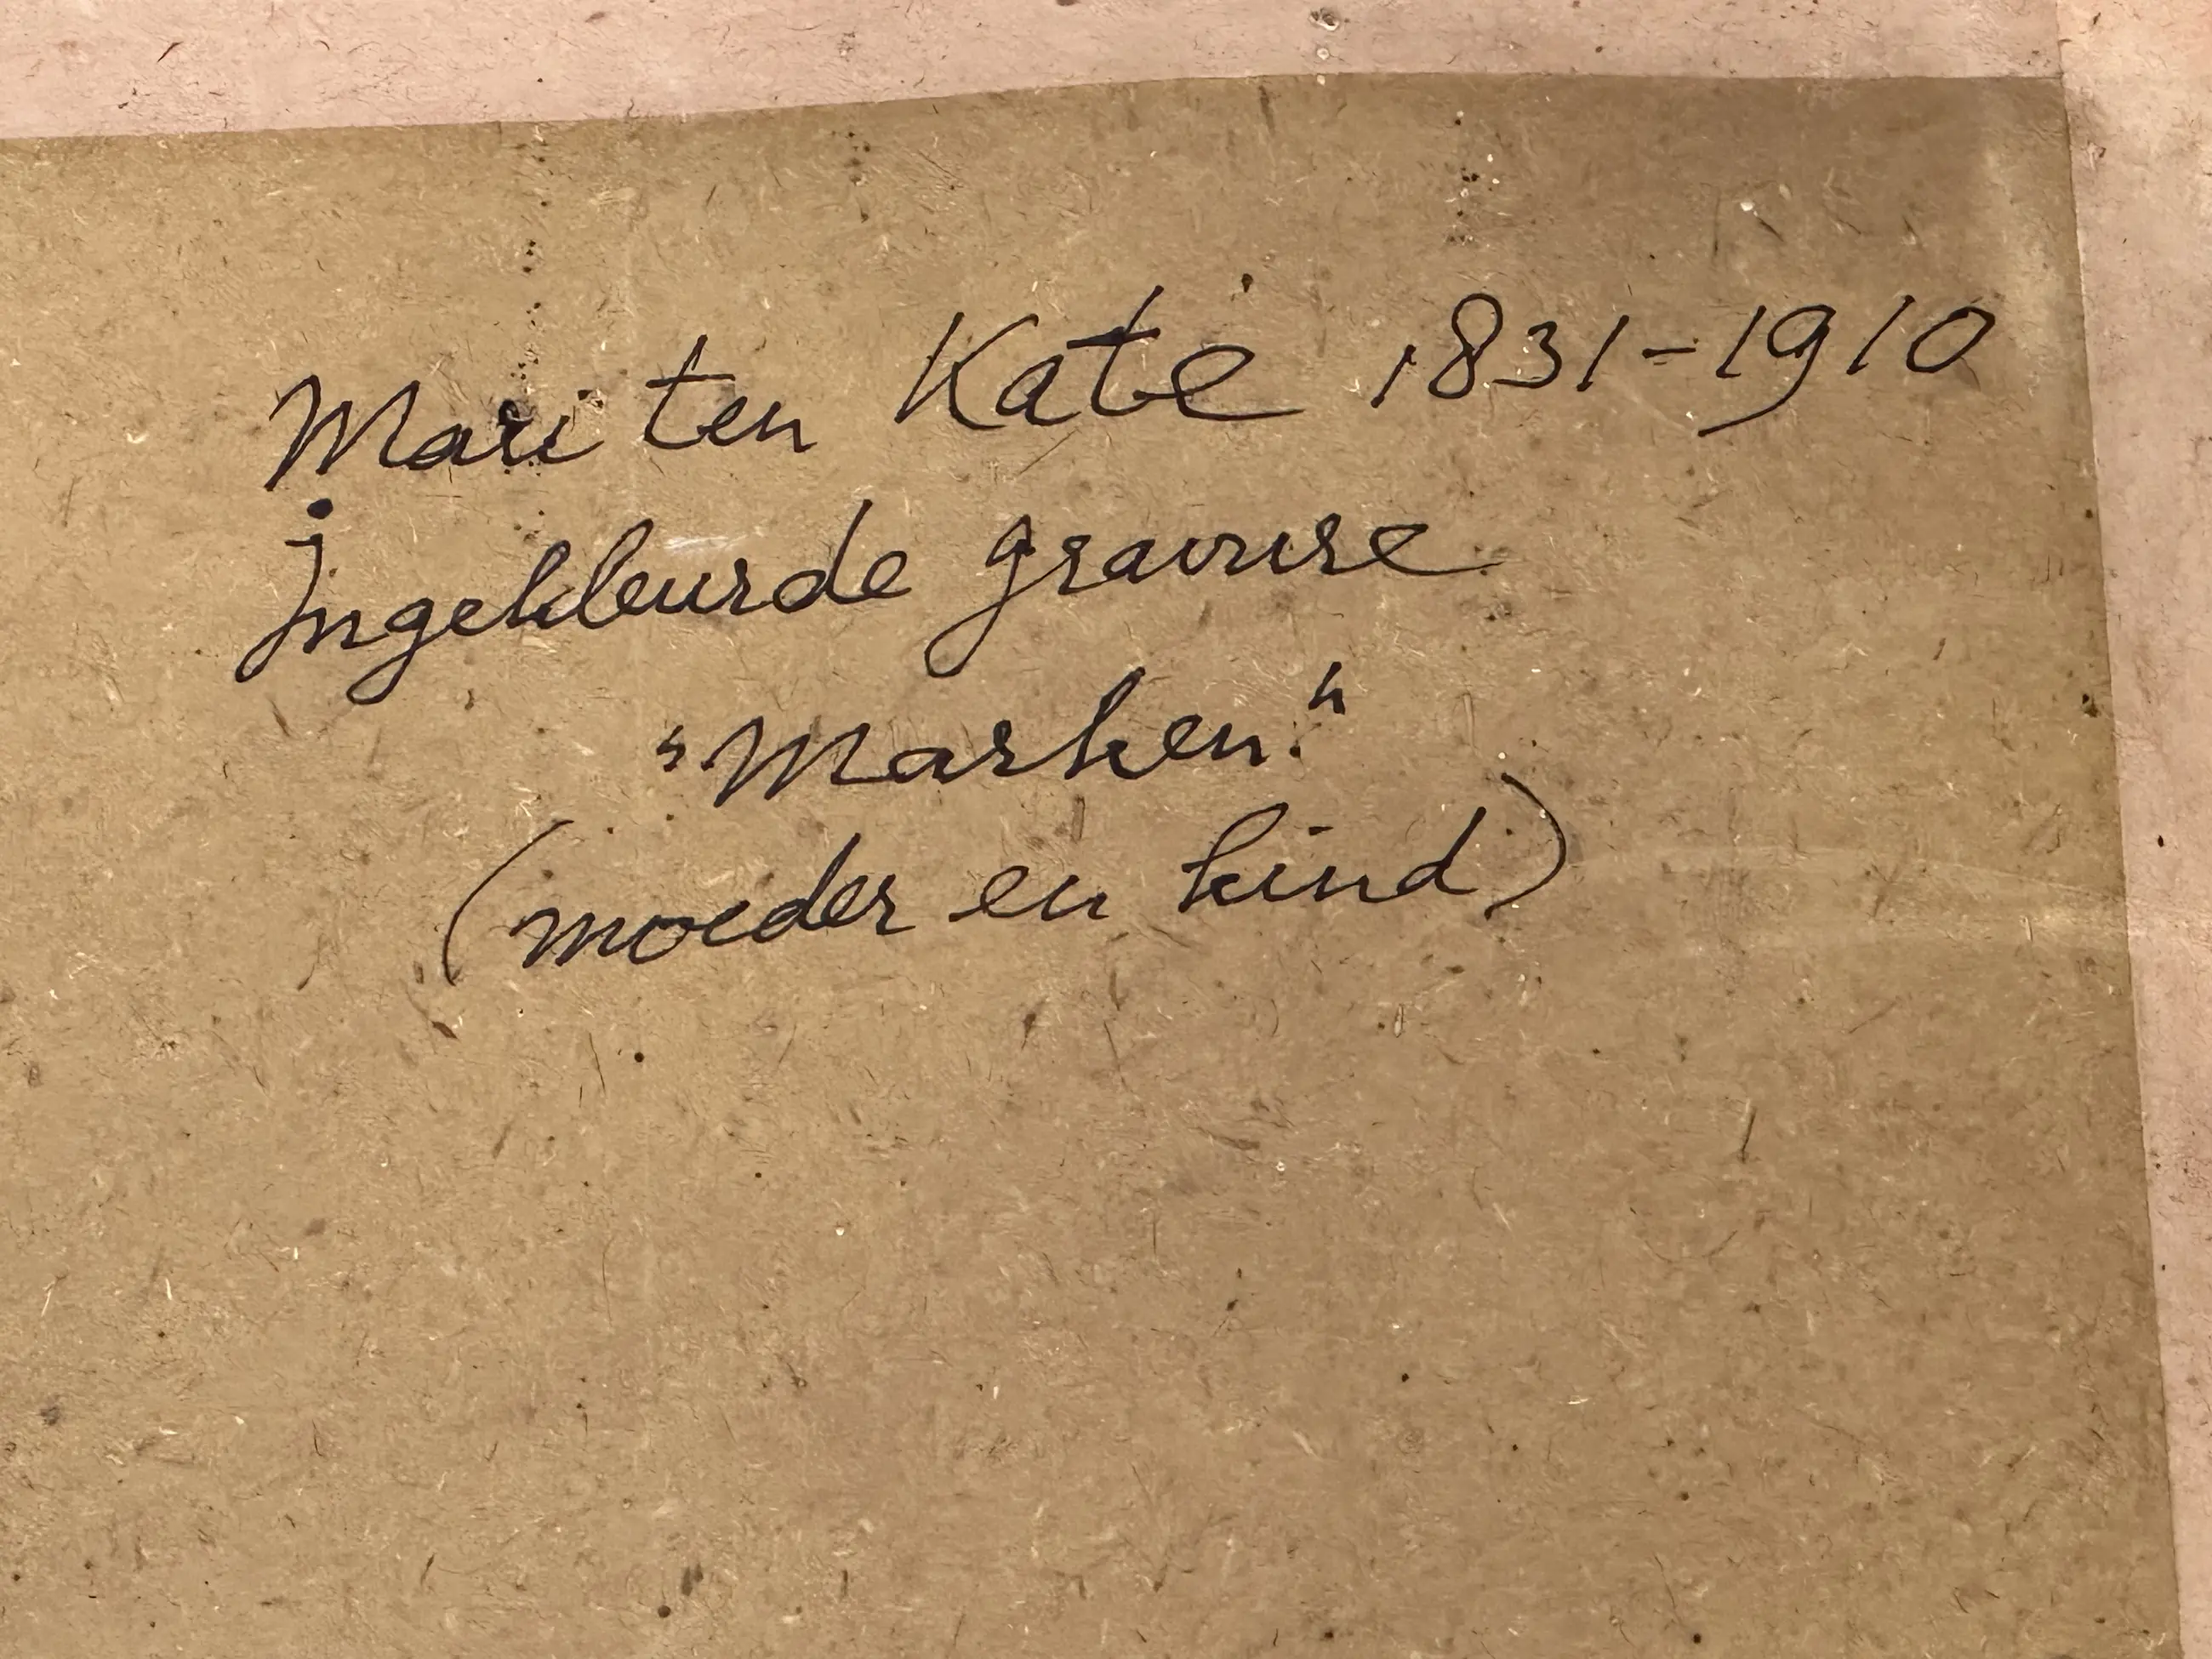 Mari ten Kate 1831-1910
Ingekleurde gravure
"Marken."
(moeder en kind)